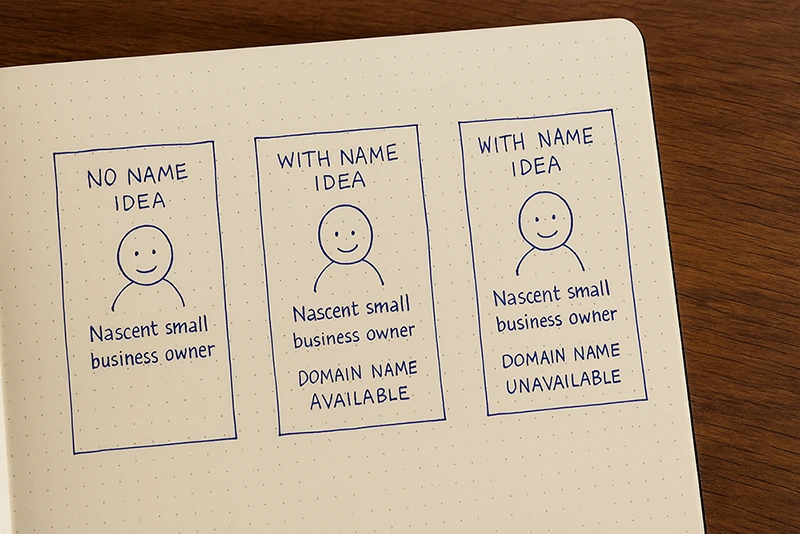 NO NAME
IDEA
Nascent small
business owner
WITH NAME
IDEA
Nascent small
business owner
DOMAIN NAME
AVAILABLE
WITH NAME
IDEA
Nascent small
business owner
DOMAIN NAME
UNAVAILABLE